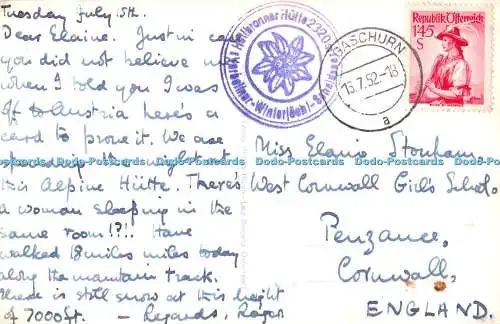 Tuesday July 15th.
Dear Elaine. Just in case
you did not believe me
when I told you I was
off to Austria here's a
card to prove it. We are
spending the night at
this Alpine Hütte. There's
a woman sleeping in the
same room!?!! Have
walked 18 miles miles today
along the mountain track.
there is still snow at this height
of 7000ft. — Regards, Roger
Heilbronner Hütte 2320
GASCHURN
15.7.52-18
a
Republik Österreich
1.45
S
Miss Elaine Stonham
West Cornwall Girls School
Penzance,
Cornwall,
ENGLAND.
Dodo-Postcards Dodo-Postcards Dodo-Postcards Dodo-Postcards